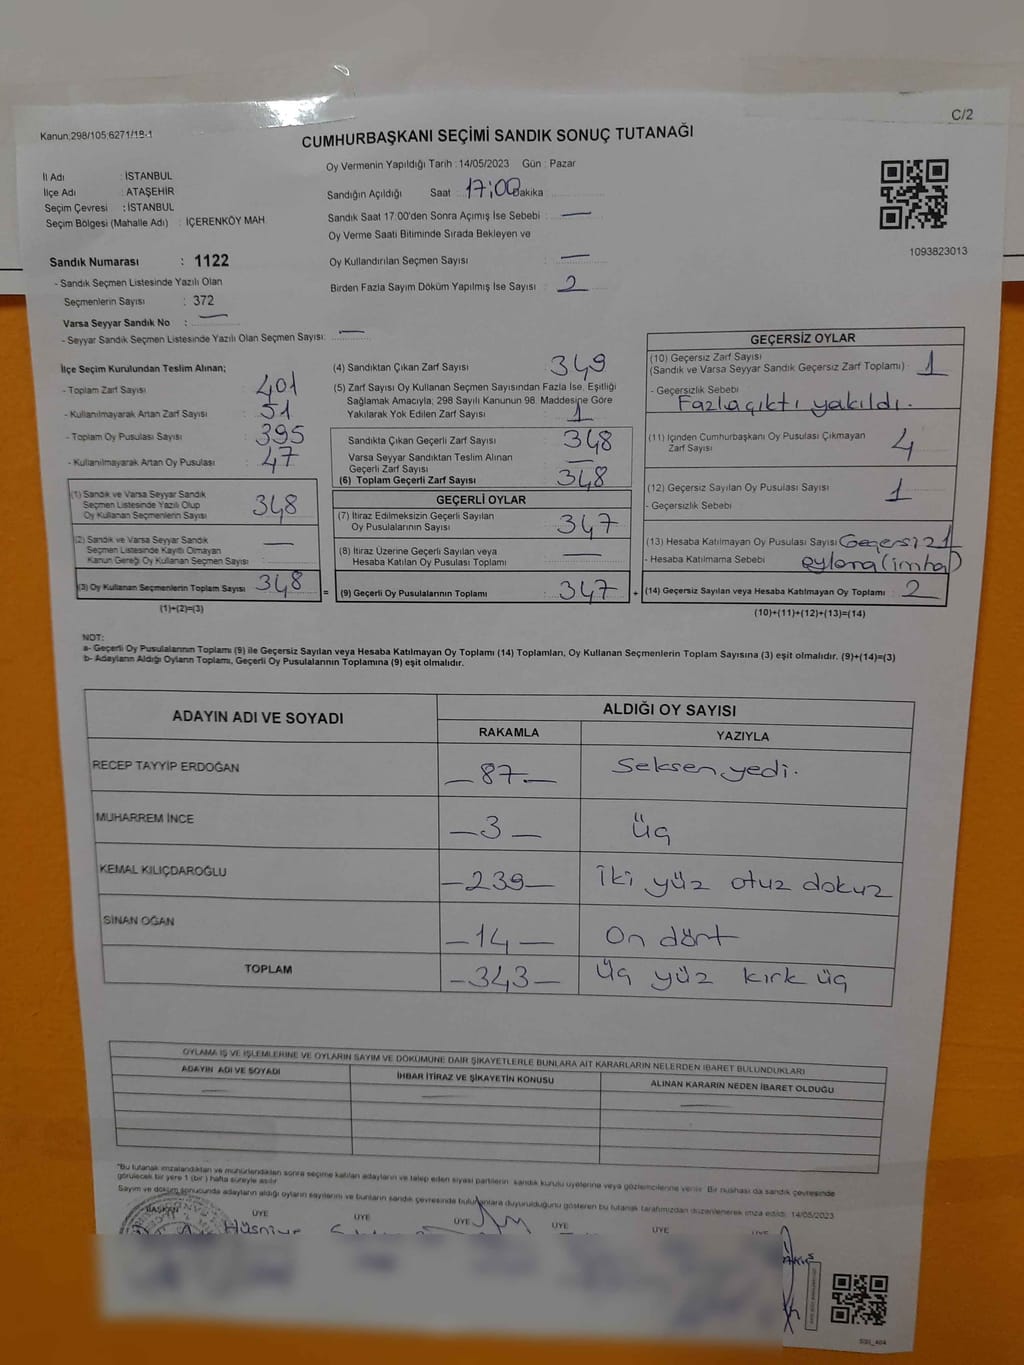 C/2
Kanun,298/105,6271/18-1
CUMHURBAŞKANI SEÇİMİ SANDIK SONUÇ TUTANAĞI
Oy Vermenin Yapıldığı Tarih : 14/05/2023 Gün : Pazar
İl Adı : İSTANBUL
İlçe Adı : ATAŞEHİR
Seçim Çevresi : İSTANBUL
Seçim Bölgesi (Mahalle Adı) : İÇERENKÖY MAH
Sandık Numarası : 1122
- Sandık Seçmen Listesinde Yazılı Olan
Seçmenlerin Sayısı : 372
Varsa Seyyar Sandık No : —
- Seyyar Sandık Seçmen Listesinde Yazılı Olan Seçmen Sayısı: —
Sandığın Açıldığı Saat 17:00 Dakika
Sandık Saat 17:00'den Sonra Açımış İse Sebebi : —
Oy Verme Saati Bitiminde Sırada Bekleyen ve
Oy Kullandırılan Seçmen Sayısı : —
Birden Fazla Sayım Döküm Yapılmış İse Sayısı : 2
1093823013
İlçe Seçim Kurulundan Teslim Alınan;
- Toplam Zarf Sayısı : 401
- Kullanılmayarak Artan Zarf Sayısı : 51
- Toplam Oy Pusulası Sayısı : 395
- Kullanılmayarak Artan Oy Pusulası : 47
(1) Sandık ve Varsa Seyyar Sandık
Seçmen Listesinde Yazılı Olup
Oy Kullanan Seçmenlerin Sayısı 348
(2) Sandık ve Varsa Seyyar Sandık
Seçmen Listesinde Kayıtlı Olmayan
Kanun Gereği Oy Kullanan Seçmen Sayısı : —
(3) Oy Kullanan Seçmenlerin Toplam Sayısı 348
(1)+(2)=(3)
(4) Sandıktan Çıkan Zarf Sayısı : 349
(5) Zarf Sayısı Oy Kullanan Seçmen Sayısından Fazla İse, Eşitliği
Sağlamak Amacıyla; 298 Sayılı Kanunun 98. Maddesine Göre
Yakılarak Yok Edilen Zarf Sayısı : 1
Sandıkta Çıkan Geçerli Zarf Sayısı : 348
Varsa Seyyar Sandıktan Teslim Alınan
Geçerli Zarf Sayısı : —
(6) Toplam Geçerli Zarf Sayısı : 348
GEÇERLİ OYLAR
(7) İtiraz Edilmeksizin Geçerli Sayılan
Oy Pusulalarının Sayısı : 347
(8) İtiraz Üzerine Geçerli Sayılan veya
Hesaba Katılan Oy Pusulası Toplamı : —
= (9) Geçerli Oy Pusulalarının Toplamı : 347
GEÇERSİZ OYLAR
(10) Geçersiz Zarf Sayısı
(Sandık ve Varsa Seyyar Sandık Geçersiz Zarf Toplamı) : 1
- Geçersizlik Sebebi
Fazla çıktı yakıldı.
(11) İçinden Cumhurbaşkanı Oy Pusulası Çıkmayan
Zarf Sayısı 4
(12) Geçersiz Sayılan Oy Pusulası Sayısı : 1
- Geçersizlik Sebebi
(13) Hesaba Katılmayan Oy Pusulası Sayısı : Geçersiz 1
- Hesaba Katılmama Sebebi : oylana (imha)
+ (14) Geçersiz Sayılan veya Hesaba Katılmayan Oy Toplamı : 2
(10)+(11)+(12)+(13)=(14)
NOT:
a- Geçerli Oy Pusulalarının Toplamı (9) ile Geçersiz Sayılan veya Hesaba Katılmayan Oy Toplamı (14) Toplamları, Oy Kullanan Seçmenlerin Toplam Sayısına (3) eşit olmalıdır. (9)+(14)=(3)
b- Adayların Aldığı Oyların Toplamı, Geçerli Oy Pusulalarının Toplamına (9) eşit olmalıdır.
ADAYIN ADI VE SOYADI ALDIĞI OY SAYISI
RAKAMLA YAZIYLA
RECEP TAYYİP ERDOĞAN — 87 — Seksen yedi.
MUHARREM İNCE — 3 — Üç
KEMAL KILIÇDAROĞLU — 239 — İki yüz otuz dokuz
SİNAN OĞAN — 14 — On dört
TOPLAM — 343 — Üç yüz kırk üç
OYLAMA İŞ VE İŞLEMLERİNE VE OYLARIN SAYIM VE DÖKÜMÜNE DAİR ŞİKAYETLERLE BUNLARA AİT KARARLARIN NELERDEN İBARET BULUNDUKLARI
ADAYIN ADI VE SOYADI İHBAR İTİRAZ VE ŞİKAYETİN KONUSU ALINAN KARARIN NEDEN İBARET OLDUĞU
— — —
"Bu tutanak imzalandıktan ve mühürlendikten sonra seçime katılan adayların ve talep eden siyasi partilerin sandık kurulu üyelerine veya gözlemcilerine verilir. Bir nüshası da sandık çevresinde
görülecek bir yere 1 (bir) hafta süreyle asılır.
Sayım ve döküm sonucunda adayların aldığı oyların sayılarını ve bunların sandık çevresinde bulunanlara duyurulduğunu gösteren bu tutanak tarafımızdan düzenlenerek imza edildi. 14/05/2023
BAŞKAN ÜYE ÜYE ÜYE ÜYE ÜYE ÜYE
Hüsniye